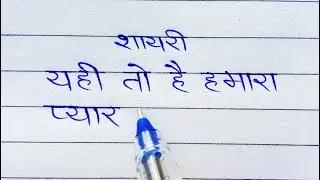 शायरी
यही तो है हमारा
प्यार